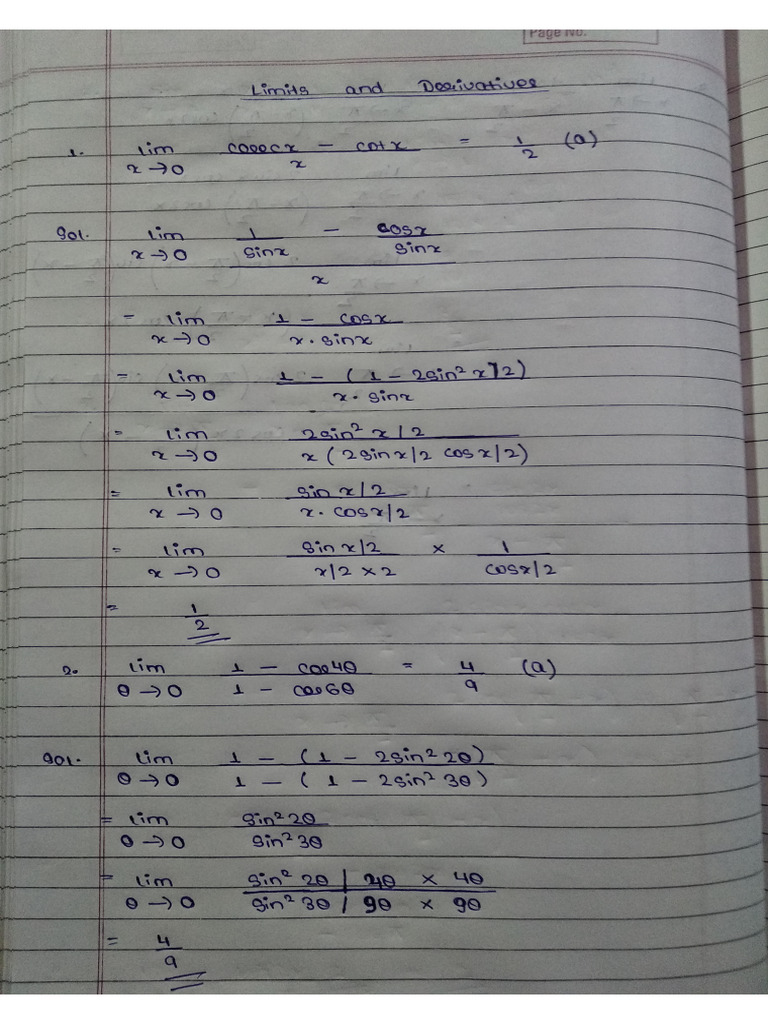 Page No.
Limits and Derivatives
1. lim x→0 cosecx - cotx / x = 1/2 (a)
sol. lim x→0 1/sinx - cosx/sinx / x
= lim x→0 1 - cosx / x·sinx
= lim x→0 1 - (1 - 2sin² x/2) / x·sinx
= lim x→0 2sin² x/2 / x (2sin x/2 cos x/2)
= lim x→0 sin x/2 / x·cos x/2
= lim x→0 sin x/2 / x/2 × 2 × 1 / cos x/2
= 1/2
2. lim θ→0 1 - cos4θ / 1 - cos6θ = 4/9 (a)
sol. lim θ→0 1 - (1 - 2sin² 2θ) / 1 - (1 - 2sin² 3θ)
= lim θ→0 sin² 2θ / sin² 3θ
= lim θ→0 sin² 2θ / 4θ × 4θ / sin² 3θ / 9θ × 9θ
= 4/9